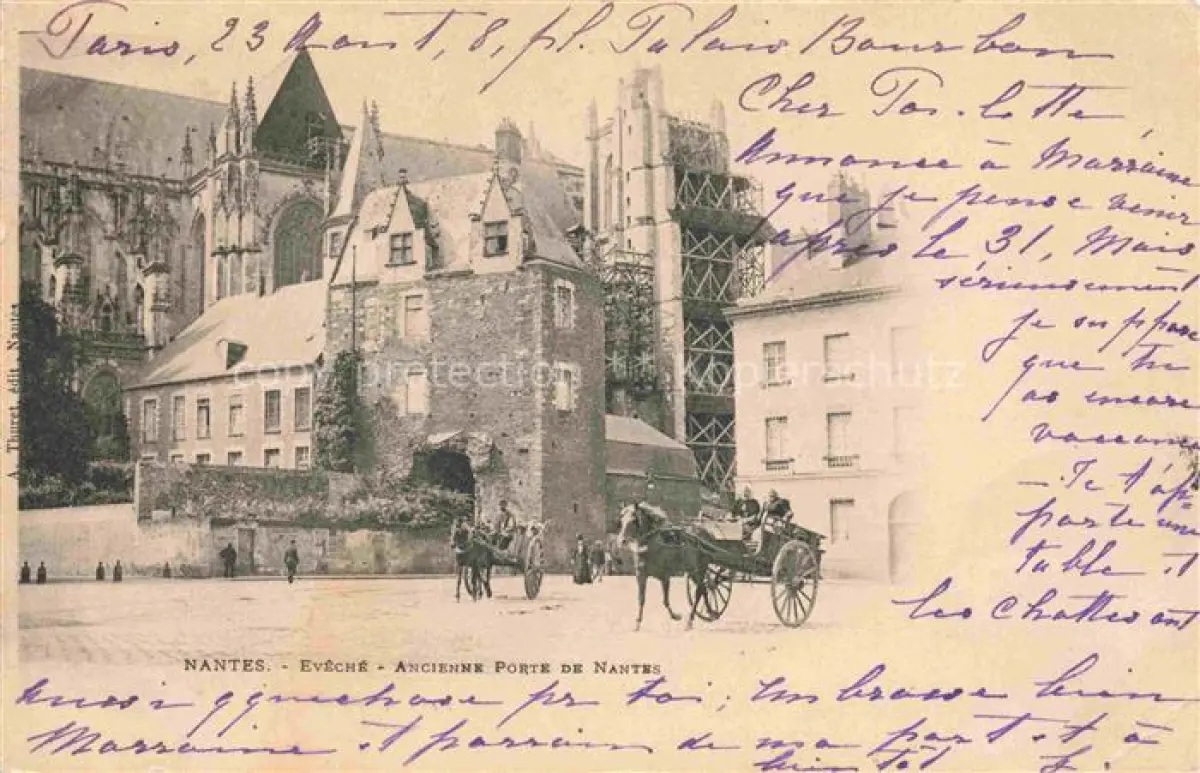 Paris, 23 Aout, 8, pl. Palais Bourbon
Cher Tos-lotte,
Annonce à Marraine
que je pense venir
après le 31, Mais
sérieusement
je suppose
que tu
as encore
vaccance
- Je t'ap-
porte une
table et
les Chattes ont
Aussi qquechose pr toi; Embrasse bien
Marraine et parrain de ma part et à
bien tôt
NANTES. - EVÊCHÉ - ANCIENNE PORTE DE NANTES
A. Thuret, édit. Nantes
copy protection Kopierschutz